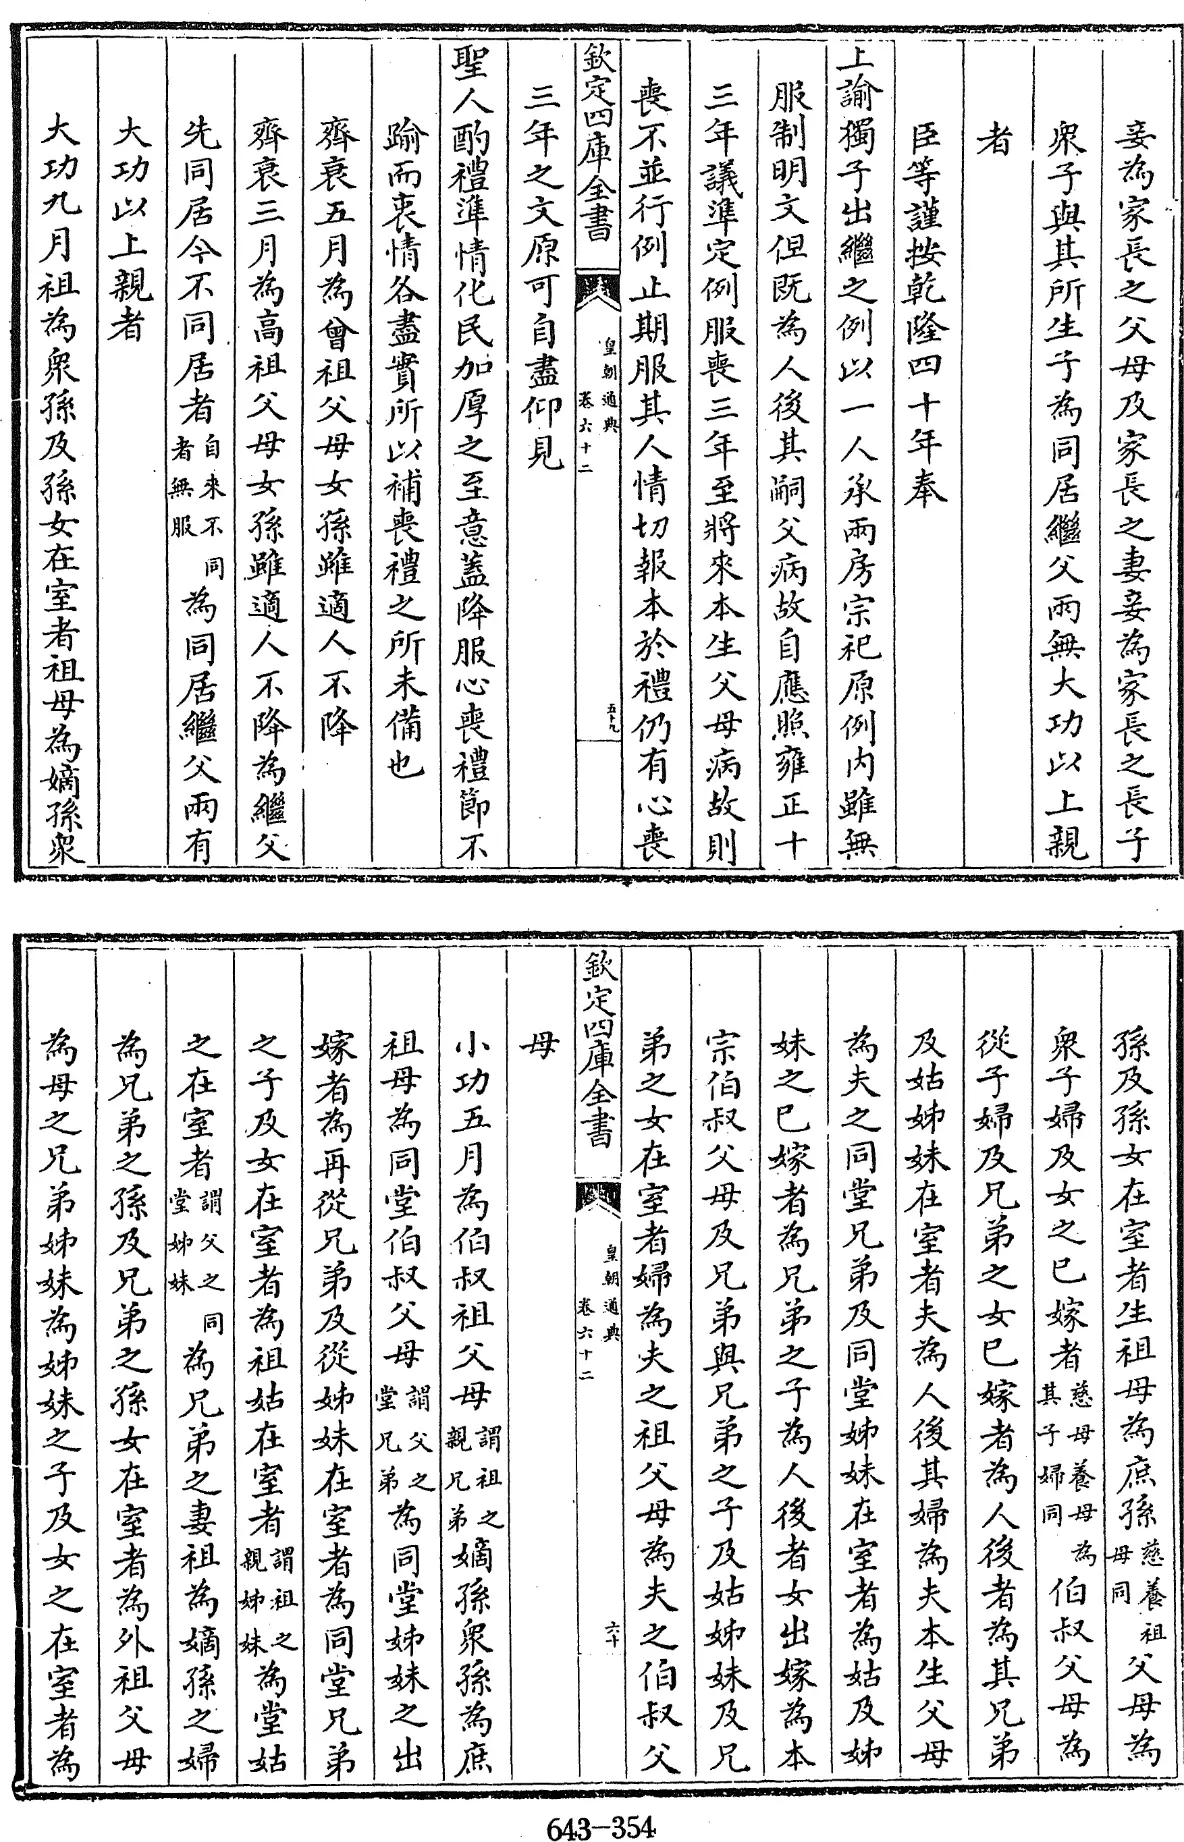 妾為家長之父母及家長之妻妾為家長之長子
衆子與其所生子為同居繼父兩無大功以上親
者
臣等謹按乾隆四十年奉
上諭獨子出繼之例以一人承兩房宗祀原例内雖無
服制明文但既為人後其嗣父病故自應照雍正十
三年議準定例服喪三年至將來本生父母病故則
喪不並行例止期服其人情切報本於禮仍有心喪
欽定四庫全書
皇朝通典
卷六十二
五十九
三年之文原可自盡仰見
聖人酌禮準情化民加厚之至意蓋降服心喪禮節不
踰而衷情各盡實所以補喪禮之所未備也
齊衰五月為曾祖父母女孫雖適人不降
齊衰三月為高祖父母女孫雖適人不降為繼父
先同居今不同居者自來不同者無服為同居繼父兩有
大功以上親者
大功九月祖為衆孫及孫女在室者祖母為嫡孫衆
孫及孫女在室者生祖母為庶孫慈養祖母同父母為
衆子婦及女之已嫁者慈母養母為其子婦同伯叔父母為
從子婦及兄弟之女已嫁者為人後者為其兄弟
及姑姊妹在室者夫為人後其婦為夫本生父母
為夫之同堂兄弟及同堂姊妹在室者為姑及姊
妹之已嫁者為兄弟之子為人後者女出嫁為本
宗伯叔父母及兄弟與兄弟之子及姑姊妹及兄
弟之女在室者婦為夫之祖父母為夫之伯叔父
欽定四庫全書
皇朝通典
卷六十二
六十
母
小功五月為伯叔祖父母謂祖之親兄弟嫡孫衆孫為庶
祖母為同堂伯叔父母謂父之堂兄弟為同堂姊妹之出
嫁者為再從兄弟及從姊妹在室者為同堂兄弟
之子及女在室者為祖姑在室者謂祖之親姊妹為堂姑
之在室者謂父之同堂姊妹為兄弟之妻祖為嫡孫之婦
為兄弟之孫及兄弟之孫女在室者為外祖父母
為母之兄弟姊妹為姊妹之子及女之在室者為
643-354